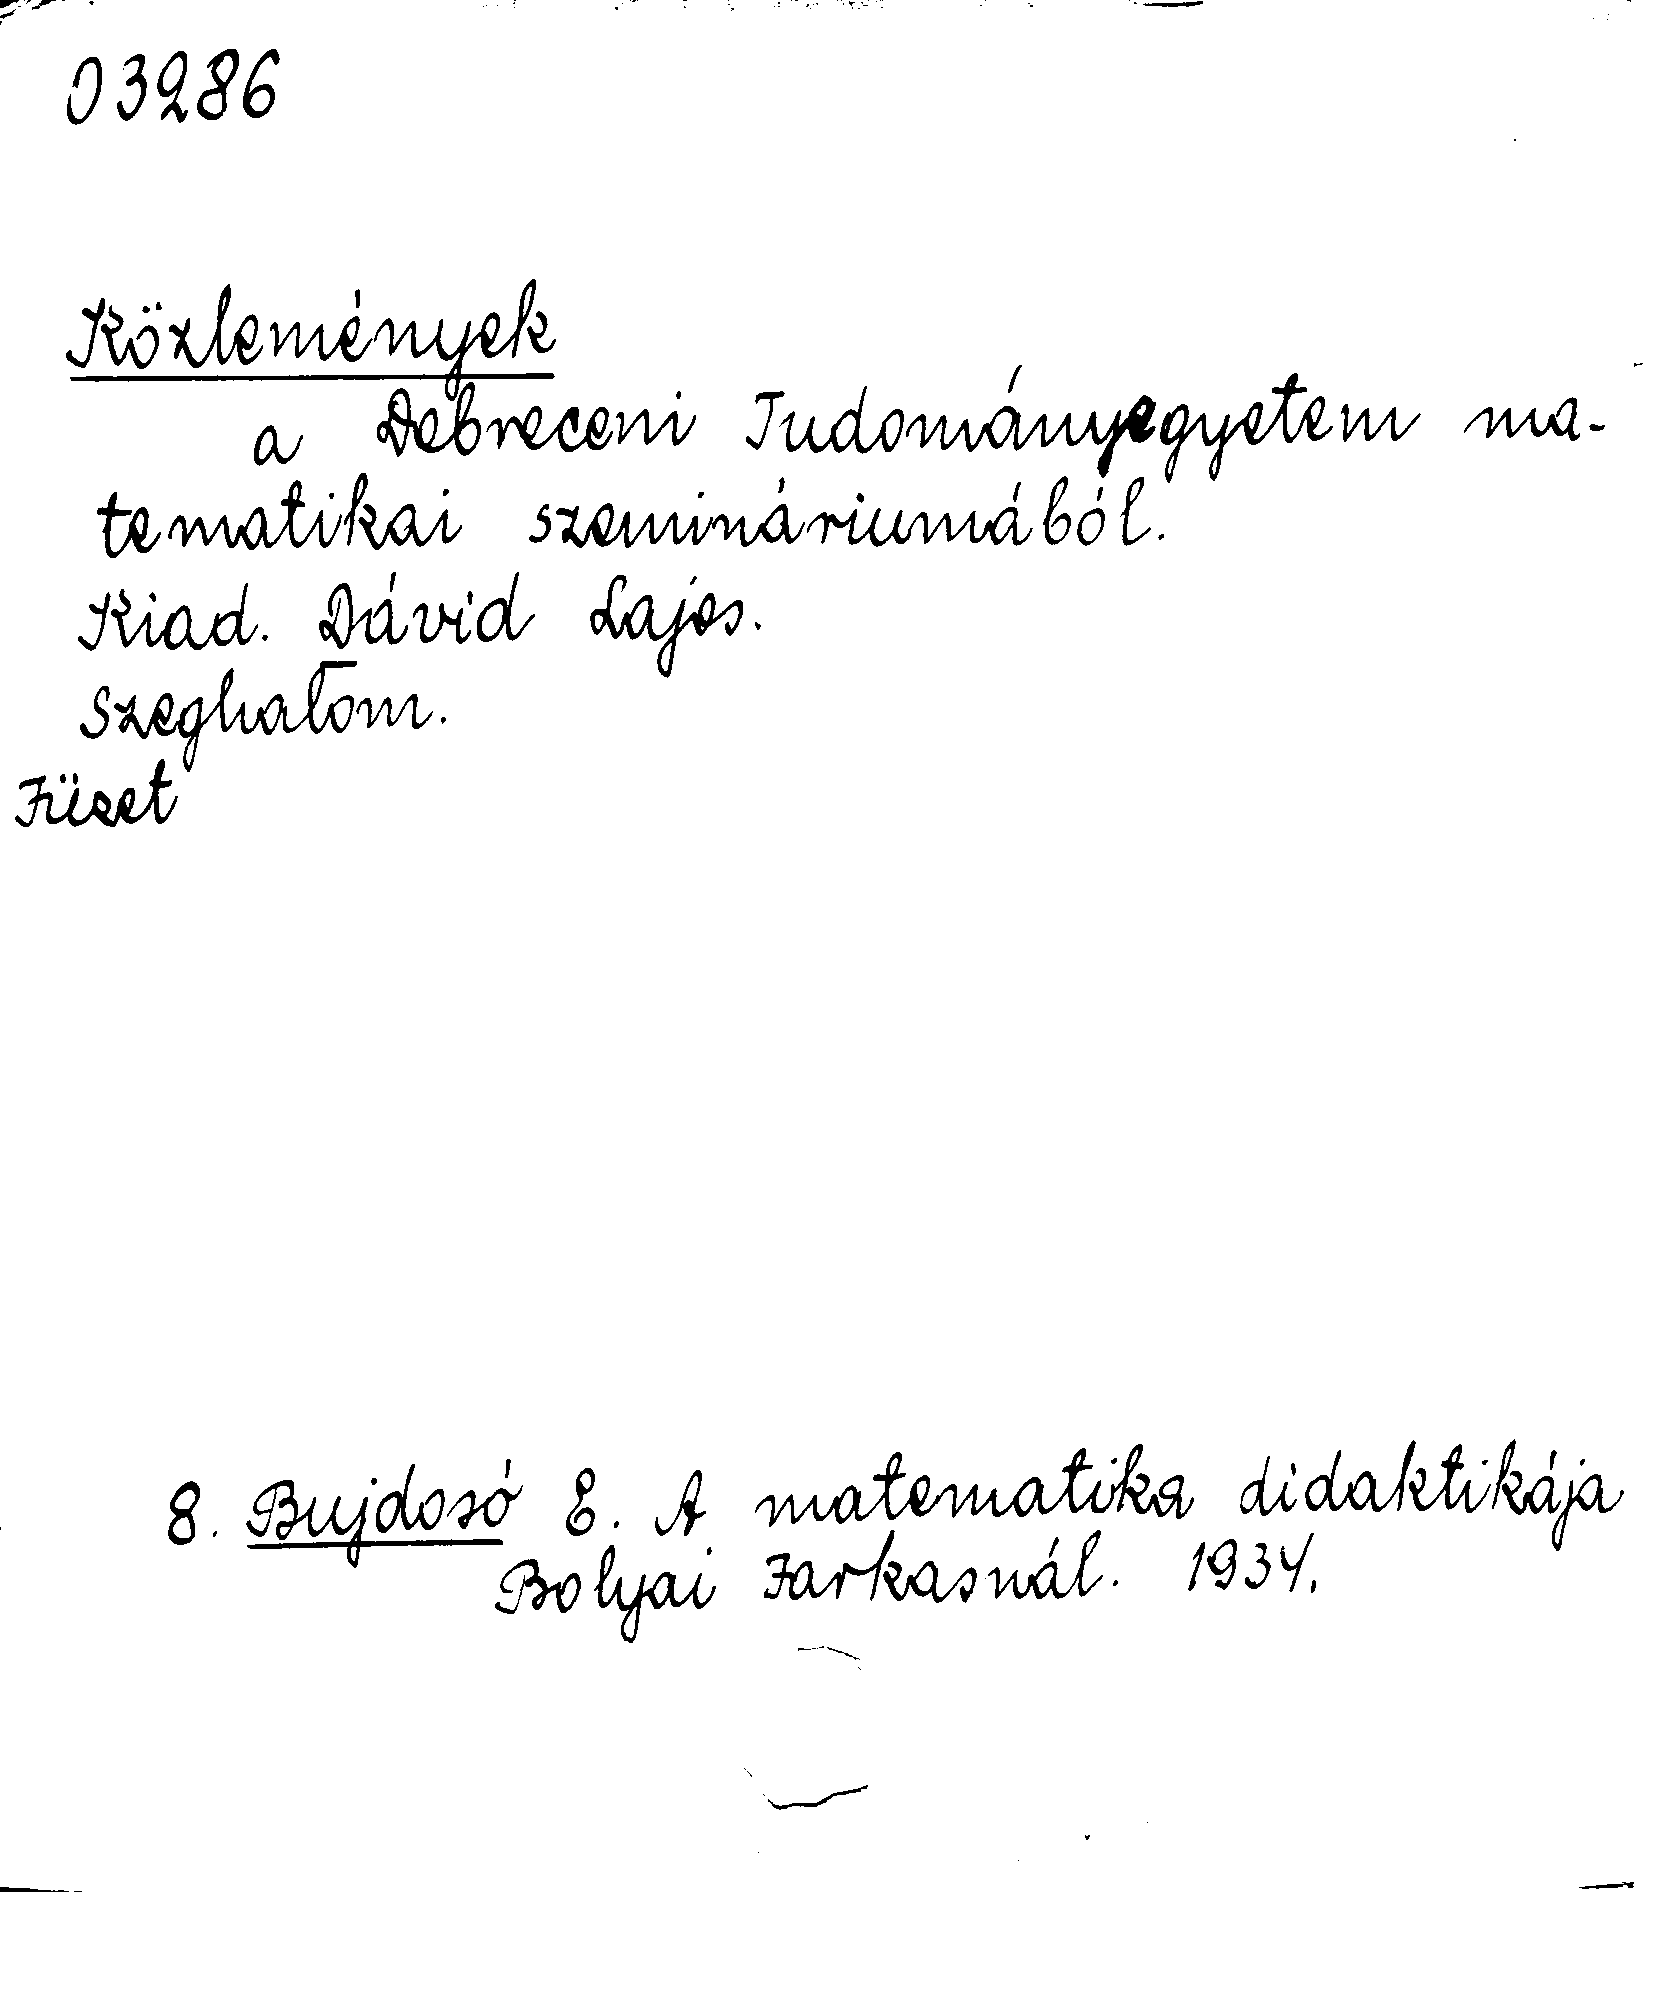 03286
Közlemények
a Debreceni Tudományegyetem ma-
tematikai szemináriumából.
Kiad. Dávid Lajos.
Szeghalom.
Füzet
8. Bujdosó E. A matematika didaktikája
Bolyai Farkasnál. 1934.